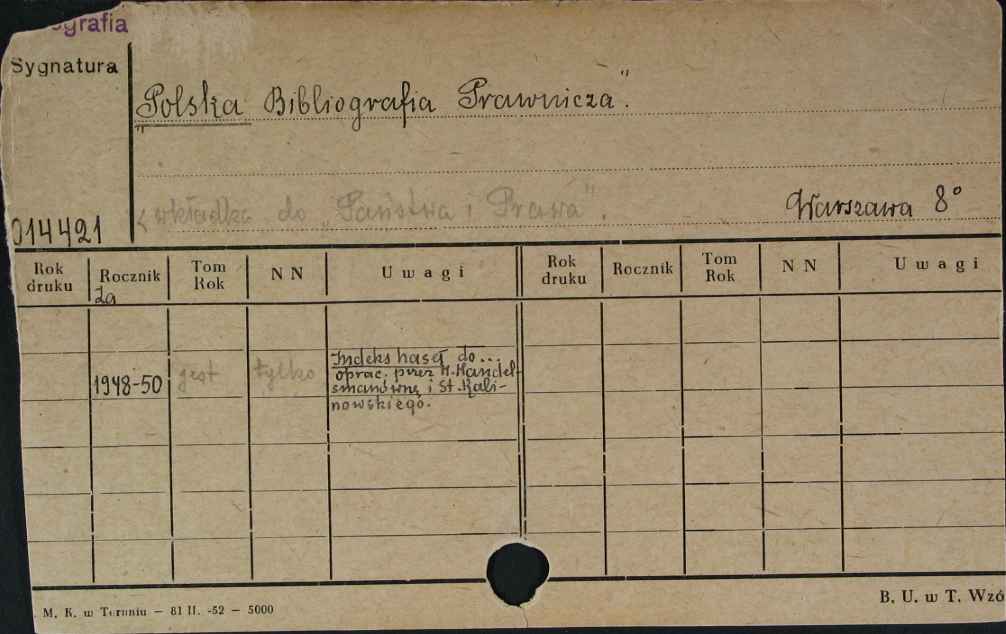 grafia
Sygnatura
„Polska Bibliografia Prawnicza".
< wkładka do „Państwa i Prawa".
Warszawa 8°
014421
Rok druku Rocznik Tom Rok N N Uwagi Rok druku Rocznik Tom Rok N N Uwagi
za
1948-50 jest tylko
Indeks haseł do...
oprac. przez H. Handel-
smanównę i St. Kali-
nowskiego.
M. K. w Toruniu — 81 II. -52 — 5000
B. U. w T. Wzó